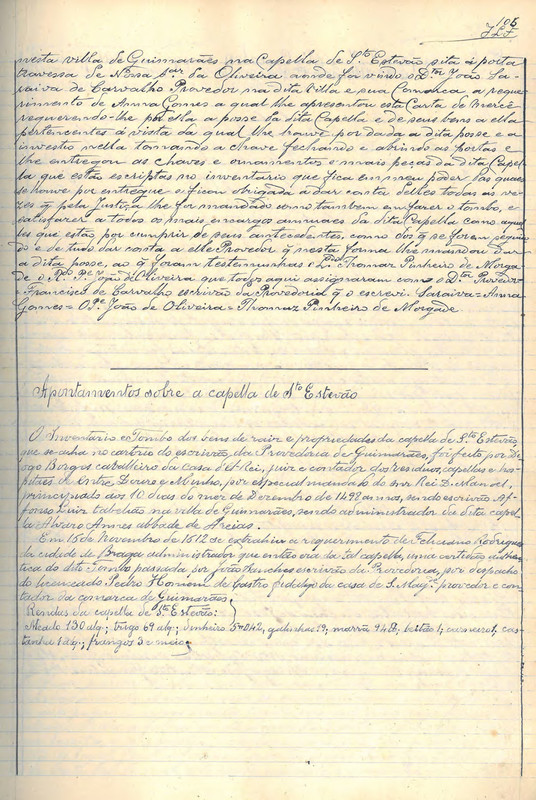 106
nesta villa de Guimarães na Capella de Sto Estevão sita á porta
travessa de Nossa Snra da Oliveira aonde foi vindo o Dtor João Sa-
raiva de Carvalho Provedor na dita Villa e sua Comarca a reque-
rimento de Anna Gomes a qual lhe apresentou esta Carta de mercê
requerendo-lhe por ella a posse da dita Capella e de seus bens a ella
pertencentes á vista da qual lhe houve por dada a dita posse e a
investio nella tomando a chave fechando e abrindo as portas e
lhe entregou as chaves e ornamentos e mais peças da dita Capel-
la que estão escriptas no inventario que fica em meu poder das quaes
se houve por entregue e ficou obrigada á dar conta delles todas as ve-
zes q pela Justiça lhe for mandado como tambem em fazer o tombo, e
satisfazer a todos os mais encargos annuaes da dita Capella como aquel-
les que estão por cumprir de seus antecedentes, como dos q se forem seguin-
do e de tudo dar conta a elle Provedor q nesta forma lhe mandou dar
a dita posse, ao q foram testemunhas o Ldo Thomaz Pinheiro de Morga-
de o Rdo Pe João de Oliveira que todos aqui assignaram com o Dtor Provedor
Francisco de Carvalho escrivão da Provedoria q o escrevi. Saraiva = Anna
Gomes = O Pe João de Oliveira = Thomaz Pinheiro de Morgade.
Apontamentos sobre a capella de Sto Estevão
O Inventário e Tombo dos bens de raiz e propriedades da capella de Sto Estevão,
que se acha no cartorio do escrivão da Provedoria de Guimarães, foi feito por Di-
ogo Borges cavalleiro da Casa d'El-Rei, juiz e contador dos residuos, capellas e hos-
pitaes de Entre Douro e Minho, por especial mandado do snr Rei D. Manoel,
principiado aos 10 dias do mez de Dezembro de 1498 annos, sendo escrivão Af-
fonso Luiz tabelião na villa de Guimarães, sendo administrador da dita capel-
la Alvaro Annes abbade de Freias.
Em 15 de Novembro de 1612 se extrahiu a requerimento de Feliciano Rodrigues
da cidade de Braga administrador que então era da tal capella, uma certidão authen-
tica do dito Tombo passada por João Sanches escrivão da Provedoria, por despacho
do licenceado Pedro Homem de Castro fidalgo da casa de S. Mag.e provedor e con-
tador da comarca de Guimarães.
Rendas da capella de Sto Estevão:
Meado 130 alq.; trigo 69 alq.; dinheiro 5$042, gallinhas 19; marrã 94 ; leitão 1; carneiro 1, cas-
tanha 1 alq.; frangos 3 e meio.